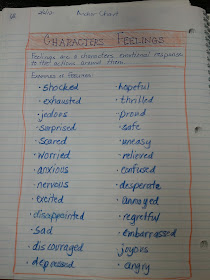 Anchor Chart
CHARACTER FEELINGS
Feelings are a characters emotional response
to the actions around them.
Examples of Feelings:
• shocked
• exhausted
• jealous
• surprised
• scared
• worried
• anxious
• nervous
• excited
• disappointed
• sad
• discouraged
• depressed
• hopeful
• thrilled
• proud
• safe
• uneasy
• relieved
• confused
• desperate
• annoyed
• regretful
• embarrassed
• joyous
• angry